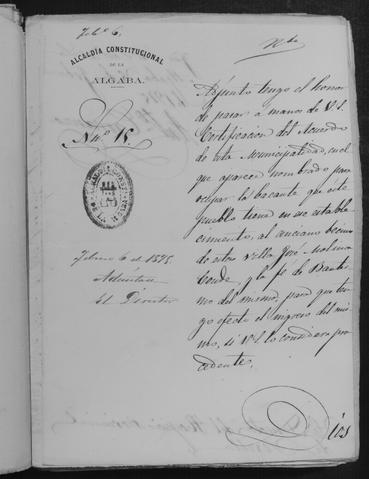 Feb.º 6.
ALCALDÍA CONSTITUCIONAL
DE LA
ALGABA.
Nº 15.
Febrero 6 de 1875.
Admítase
El Director
Adjunto tengo el honor
de pasar a manos de V.S.
Certificacion del Acuerdo
de esta Municipalidad, en el
que aparece nombrado para
ocupar la bacante que este
pueblo tiene en ese estable-
cimiento, al anciano becino
de esta villa José Molina
Conde, y la fé de Bautis-
mo del mismo, para que ten-
ga efecto el ingreso del mis-
mo, si V.S. lo considera pro-
cedente.
Dios